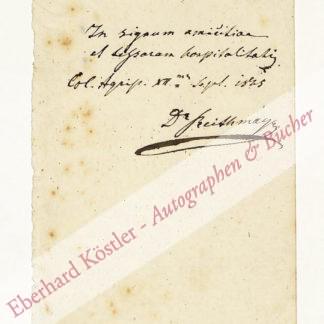 In signum amicitiae
et tesseram hospitalitatis
Col. Agrip. XII. Sept. 1835
Dr Reithmayr
Eberhard Köstler - Autographen & Bücher